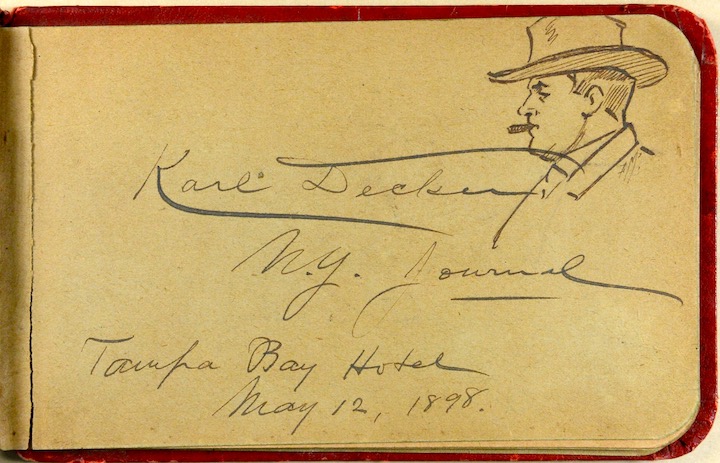 Karl Decker
N.Y. Journal
Tampa Bay Hotel
May 12, 1898.